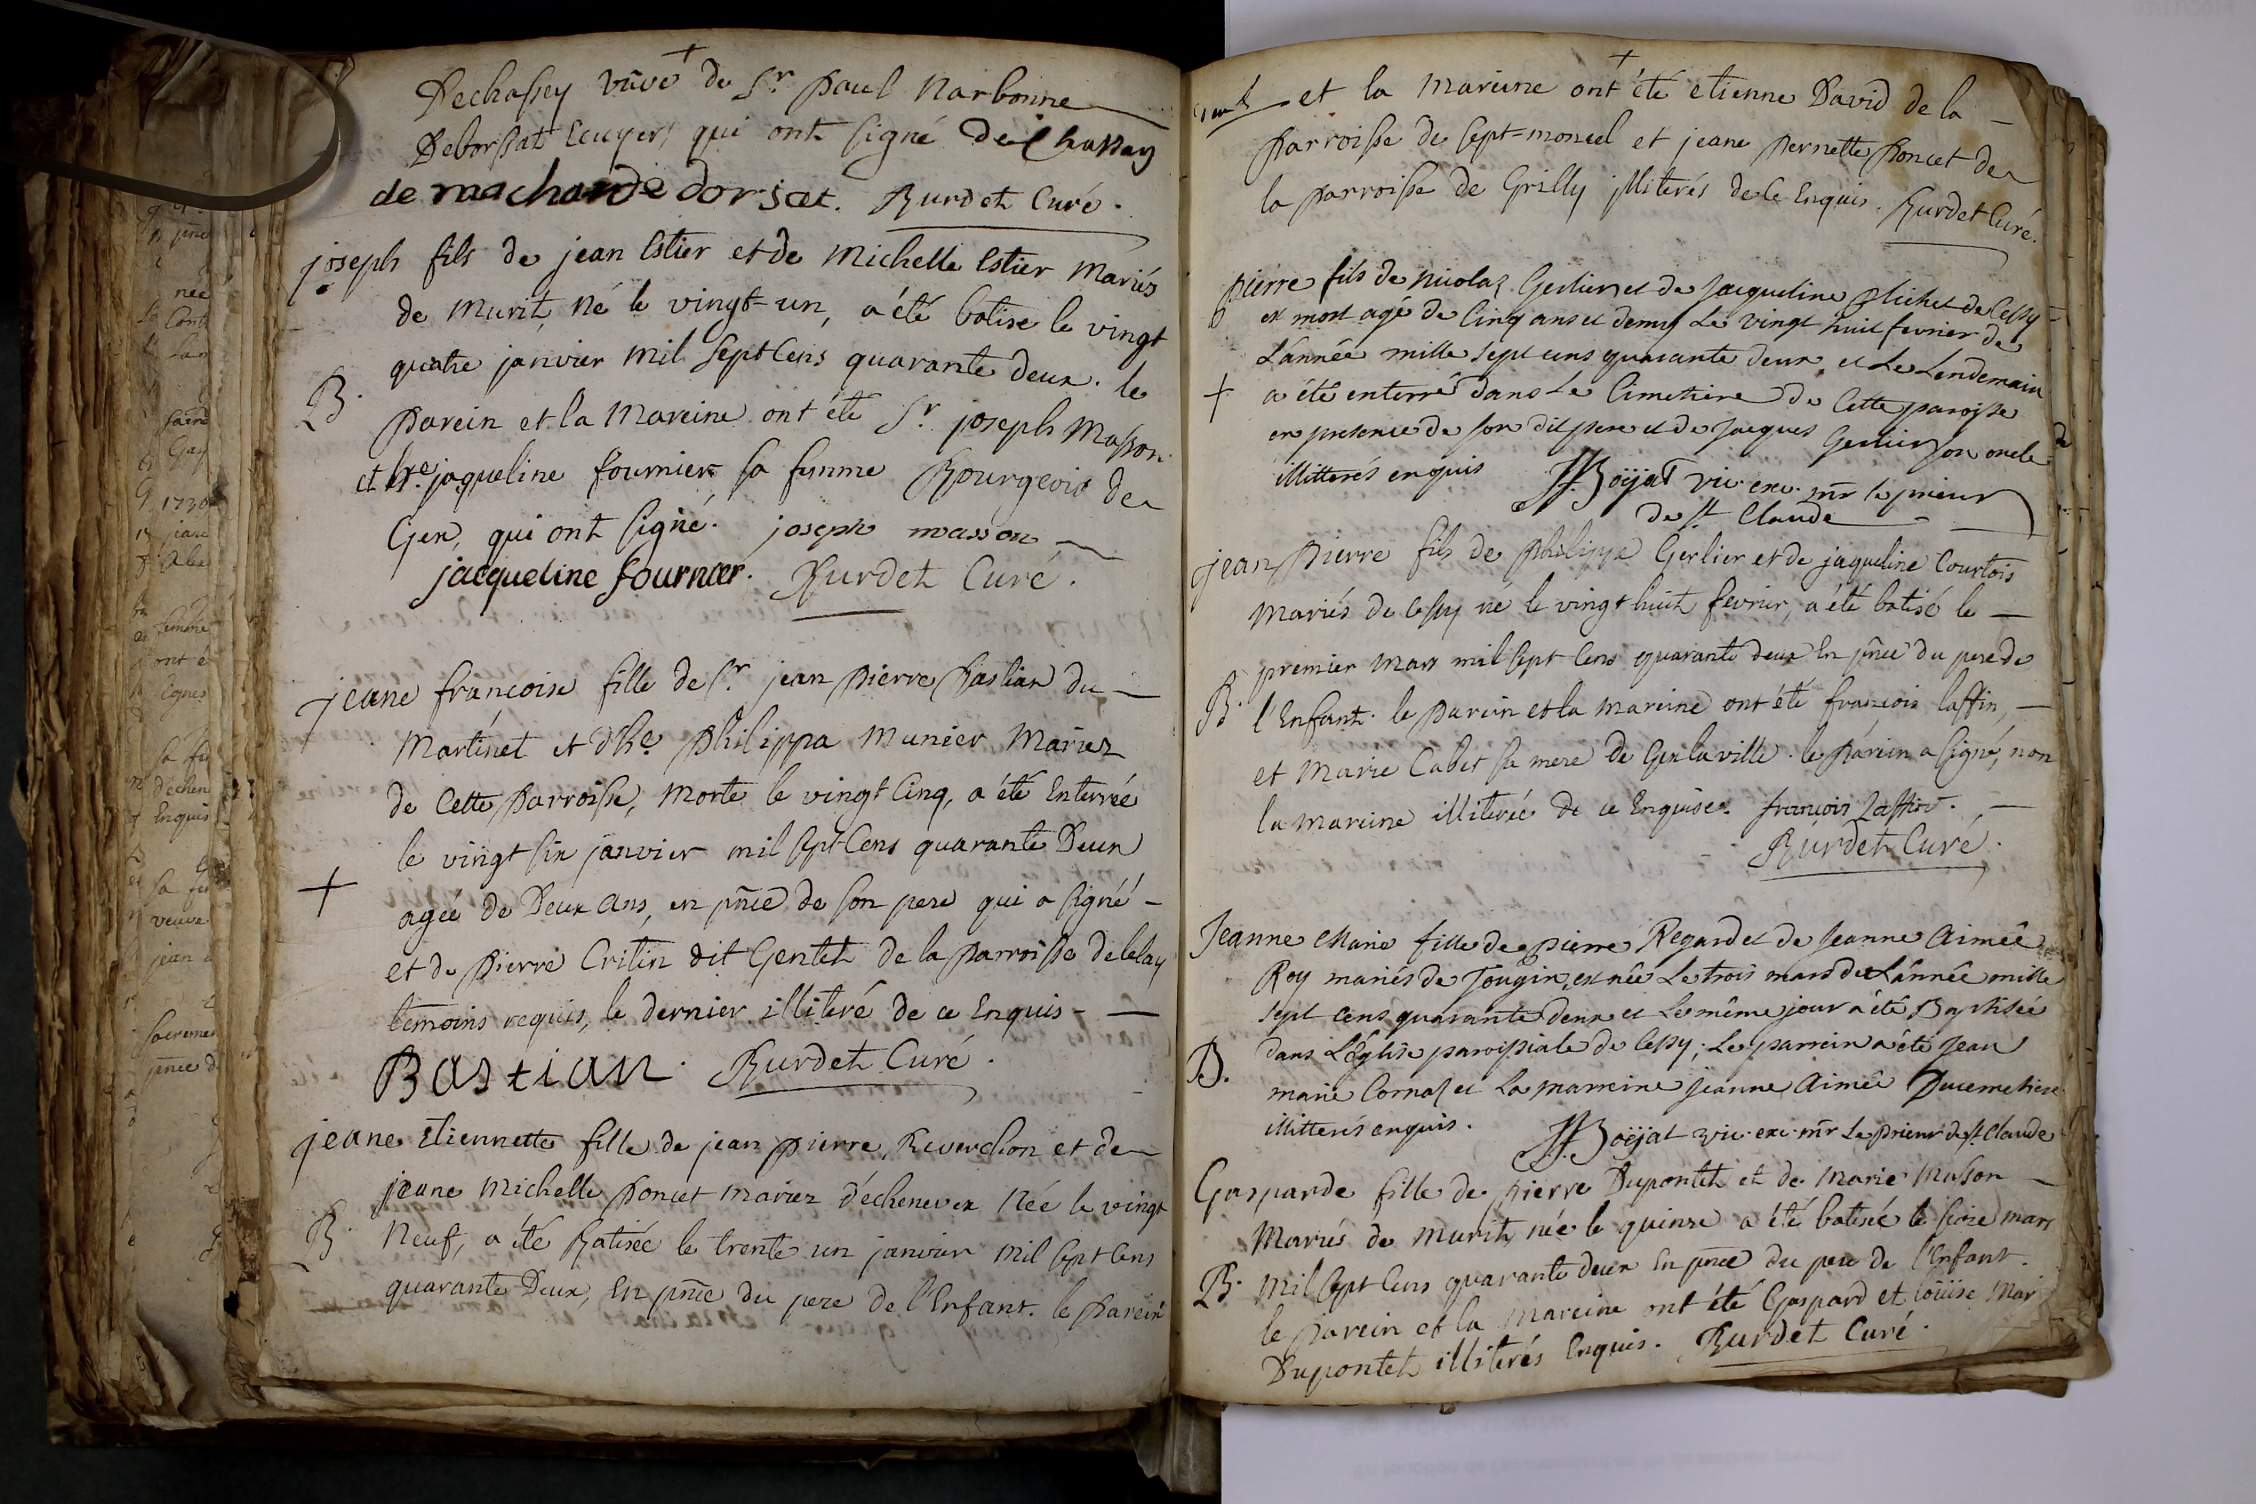 Dechassey vüve de Sr. Paul Narbonne
Deborssat Ecuyer, qui ont signé deChassey
de machard dorsat. Burdet Curé.
joseph fils de jean Estier et de Michelle Estier Mariés
de Murit, Né le vingt-un, a été batise le vingt
quatre janvier mil sept Cens quarante deux. le
B.
Parein et la Mareine ont été Sr. joseph Masson
et hre. jaqueline fournier sa femme Bourgeois de
Gex, qui ont signé. joseph masson
jacqueline fournier. Burdet Curé.
jeane francoise fille de Sr. jean Pierre Bastian du
Martinet et d'hre. Philippa Munier Mariez
de Cette Parroisse, Morte le vingt Cinq, a été Enterrée
le vingt six janvier mil sept Cens quarante Deux
+
agée de Deux Ans, en pnce de son pere qui a signéé
et de Pierre Critin dit Gentet de la Parroisse de lelay
temoins requis, le dernier illiteré de ce Enquis
Bastian. Burdet Curé.
jeane Etiennette fille de jean Pierre Reverchon et de
jeane Michelle Poncet mariez d'échenevex Née le vingt
B.
Neuf, a été Batisée le trente un janvier mil sept Cens
quarante Deux, En pnce du pere de l'Enfant. le Parein
+
et la Mareine ont été etienne David de la
Parroisse de sept=moncel et jeane Pernette Poncet de
la Parroisse de Grilly illiterés de Ce Enquis. Burdet Curé.
Pierre fils de Nicolas Gerlier et de Jacqueline Plichet de Cessy
est mort agé de Cinq ans et demy Le vingt huit fevrier de
L'année mille sept cens quarante deux, et Le Lendemain
+
a été enterré dans Le Cimetiere de Cette paroisse
en presence de son dit pere et de Jacques Gerlier son oncle
illitterés enquis JJBoÿjat vic. exc. mr le prieur
de St Claude
jean Pierre fils de Philippe Gerlier et de jaqueline Courtois
Mariés de Cessy né le vingt huit fevrier, a été batisé le
premier Mars mil sept Cens quarante deux En pnce du pere de
B.
l'Enfant. le Parein et la mareine ont été françois laffin,
et Marie Cabet sa mere de Gex la ville. le Parein a signé, non
la mareine illiterée de ce Enquise. françois Laffin.
Burdet Curé.
Jeanne Marie fille de pierre Regard et de Jeanne Aimée
Roy mariés de Tougin, est née Le trois mars de L'année mille
sept cens quarante deux et Le même jour a été Baptisée
B.
dans L'Eglise paroissiale de Cessy; Le parrein a été Jean
marie Cornaz et La marreine Jeanne Aimée Ducemetiere
illitterés enquis. JJBoÿjat vic. exc. mr Le prieur de St. Claude
Gasparde fille de Pierre Dupontet et de Marie Masson
Mariés de Murit, née le quinze a été batisée le seize mars
B.
Mil sept Cens quarante deux En pnce du pere de l'Enfant.
le Parein et la Mareine ont été Gaspard et loüise Mar
Dupontet illiterés Enquis. Burdet Curé.